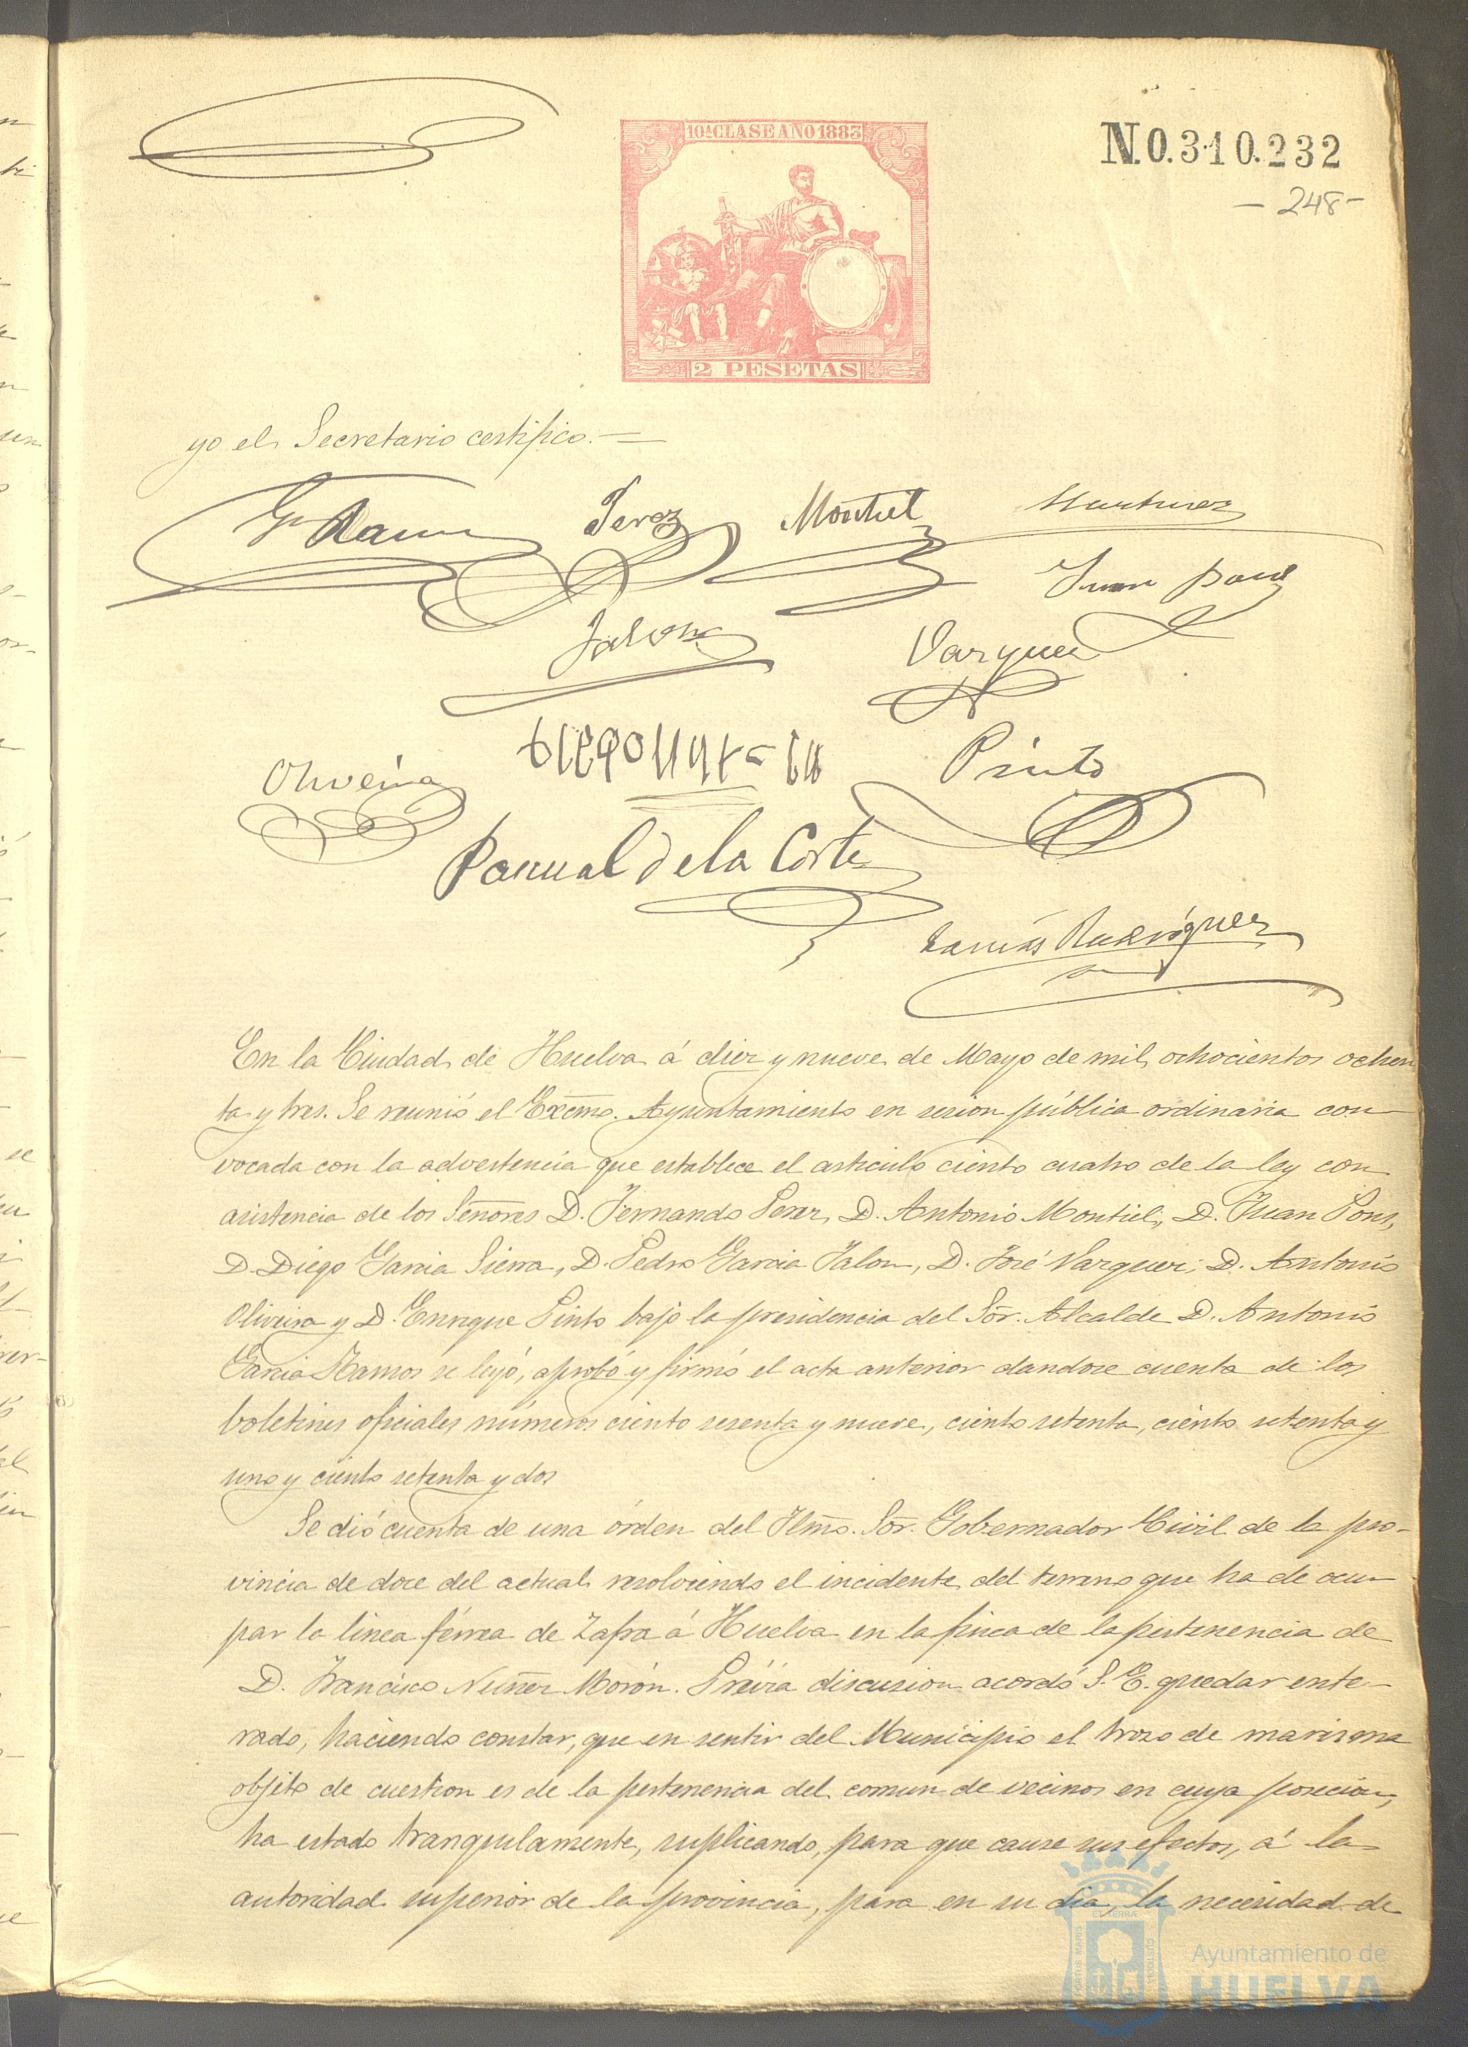 10ª CLASE AÑO 1883
N.0.310.232
- 248 -
2 PESETAS
yo el Secretario certifico. =
Gª Ramos Perez Montiel Martinez
Juan Pons
Jalon Vazquez
Oliveira Pinto
Pascual de la Corte
Rodriguez
En la Ciudad de Huelva á diez y nueve de Mayo de mil ochocientos ochen
ta y tres. Se reunió el Excmo. Ayuntamiento en sesion pública ordinaria con
vocada con la advertencia que establece el articulo ciento cuatro de la ley con
asistencia de los Señores D. Fernando Perez, D. Antonio Montiel, D. Juan Pons,
D. Diego Garcia Sierra, D. Pedro Garcia Jalon, D. José Vazquez, D. Antonio
Oliveira y D. Enrique Pinto bajo la presidencia del Sor. Alcalde D. Antonio
Garcia Ramos se leyó, aprobó y firmó el acta anterior dandose cuenta de los
boletines oficiales números ciento sesenta y nueve, ciento setenta, ciento setenta y
uno y ciento setenta y dos
Se dió cuenta de una órden del Ilmo. Sor. Gobernador Civil de la pro-
vincia de doce del actual resolviendo el incidente del terreno que ha de ocu-
par la linea férrea de Zafra á Huelva en la finca de la pertenencia de
D. Francisco Nuñez Morón. Prévia discusion acordó S. E. quedar ente-
rado, haciendo constar, que en sentir del Municipio el trozo de marisma
objeto de cuestion es de la pertenencia del comun de vecinos en cuya posecion,
ha estado tranquilamente, suplicando, para que cause sus efectos, á la
autoridad superior de la provincia, para en su dia, la necesidad de
Ayuntamiento de
HUELVA